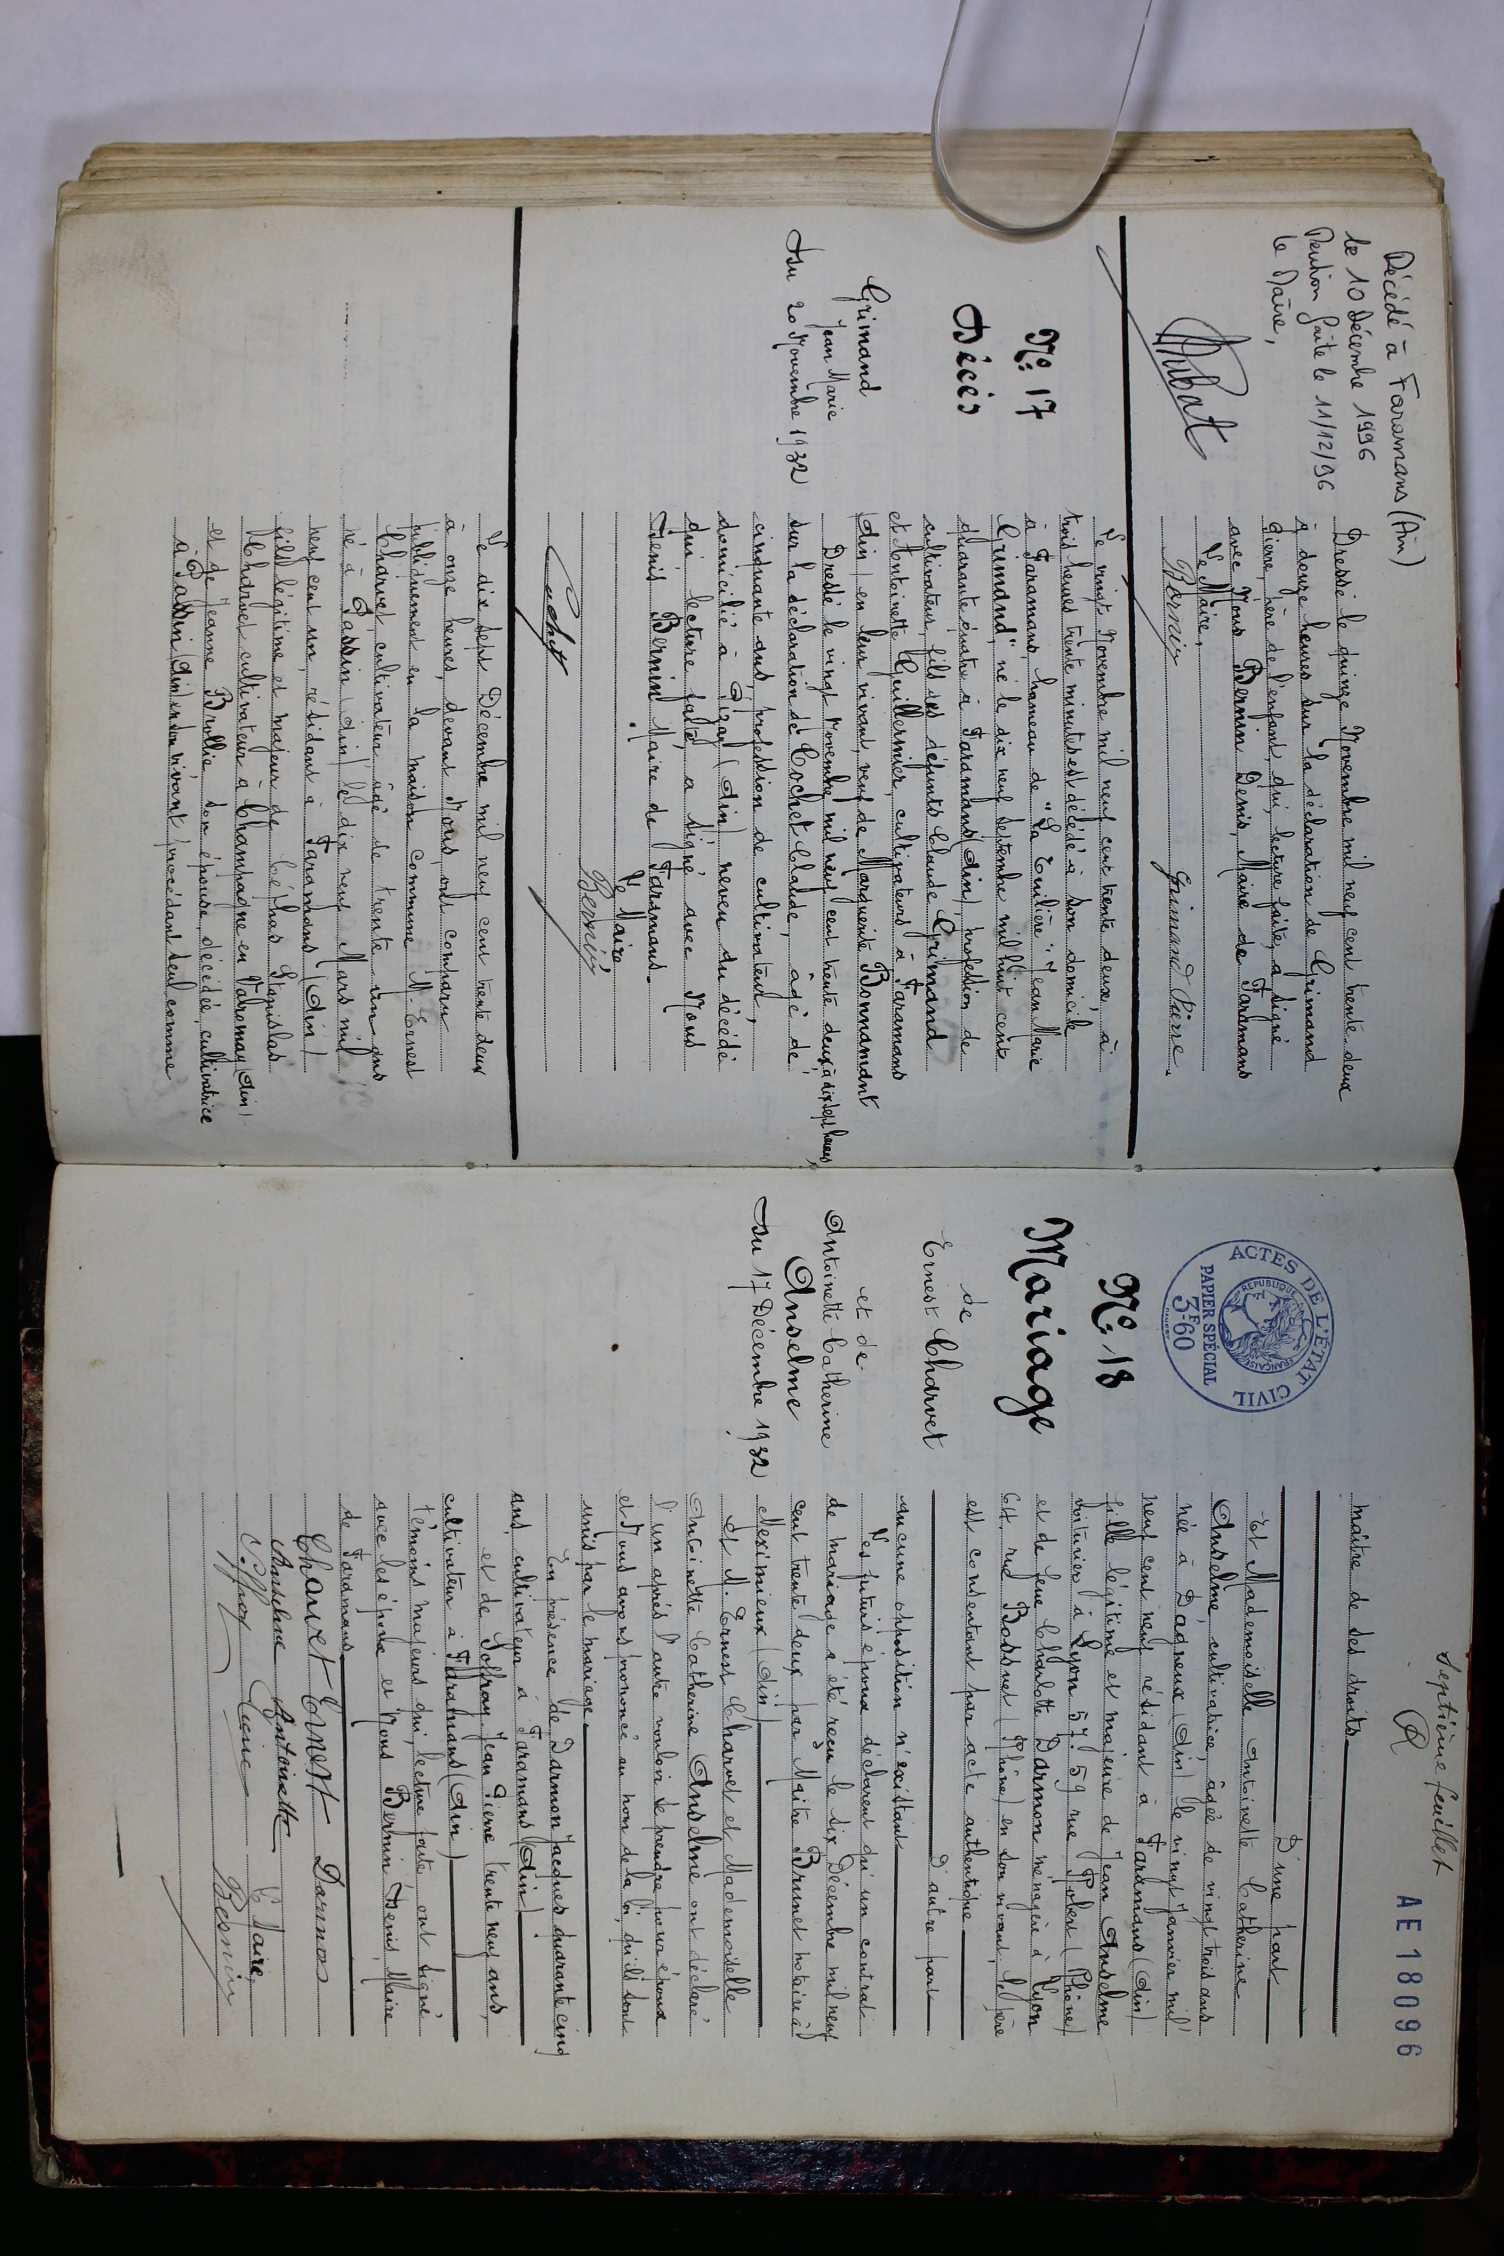 Décédé à Faramans (Ain)
le 10 Décembre 1996
Mention faite le 11/12/96
le Maire,
Dressé le quinze Novembre mil neuf cent trente-deux
à douze heures sur la déclaration de Grimand
Pierre, père de l'enfant, qui, lecture faite, a signé
avec Nous Bernin Denis, Maire de Faramans
Le Maire,
Bernin Grimand Pierre.
N° 17
Décès
Grimand
Jean Marie
Du 20 Novembre 1932
Le vingt Novembre mil neuf cent trente deux, à
trois heures trente minutes est décédé à son domicile
à Faramans, hameau de "La Tuilière", Jean Marie
"Grimand", né le dix neuf Septembre mil huit cent
quarante quatre à Faramans (Ain), profession de
cultivateur, fils des défunts Claude Grimand
et Antoinette Guillermier, cultivateurs à Faramans
(Ain) en leur vivant, veuf de Marguerite Bonnamant
Dressé le vingt Novembre mil neuf cent trente deux, à dix sept heures,
sur la déclaration de Cochet Claude, âgé de
cinquante ans, profession de cultivateur,
domicilié à Pizay (Ain) neveu du décédé
qui lecture faite, a signé avec Nous
Denis Bernin Maire de Faramans.
Le Maire
Bernin
Cochet
Le dix sept Décembre mil neuf cent trente deux
à onze heures, devant Nous, ont comparu
publiquement en la maison commune M. Ernest
Charvet, cultivateur, âgé de trente un ans
né à Passin (Ain) le dix neuf Mars mil
neuf cent un, résidant à Faramans (Ain)
fils légitime et majeur de Stanislas
Charvet cultivateur à Champagne en Valromey (Ain)
et de Jeanne Brollie son épouse, décédée, cultivatrice
à Passin (Ain) en son vivant, procédant seul comme
Septième feuillet
AE 18096
ACTES DE L'ÉTAT CIVIL
REPUBLIQUE FRANÇAISE
PAPIER SPÉCIAL
3F60
N° 18
Mariage
de
Ernest Charvet
et de
Antoinette Catherine
Anselme
Du 17 Décembre 1932
maître de ses droits
D'une part
Et Mademoiselle Antoinette Catherine
Anselme, cultivatrice, âgée de vingt trois ans
née à Dagneux (Ain) le vingt Janvier mil
neuf cent neuf résidant à Faramans (Ain)
fille légitime et majeure de Jean Anselme
voiturier à Lyon 57-59 rue Robert (Rhône)
et de feue Charlotte Darmon ménagère à Lyon
64, rue Bossuet (Rhône) en son vivant, le père
est consentant par acte authentique
D'autre part
aucune opposition n'existant
Les futurs époux déclarent qu'un contrat
de mariage a été reçu le six Décembre mil neuf
cent trente deux par Maître Brunet notaire à
Meximieux (Ain)
Et M. Ernest Charvet et Mademoiselle
Antoinette Catherine Anselme ont déclaré
l'un après l'autre vouloir se prendre pour époux
et Nous avons prononcé au nom de la loi, qu'ils sont
unis par le mariage.
En présence de Darmon Jacques quarante cinq
ans, cultivateur à Faramans (Ain)
et de Soffray Jean Pierre trente neuf ans,
cultivateur à Faramans (Ain)
témoins majeurs qui, lecture faite ont signé
avec les époux et Nous Bernin Denis, Maire
de Faramans
Charvet Ernest Darmon
Anselme Antoinette
Soffray Pierre Le Maire,
Bernin